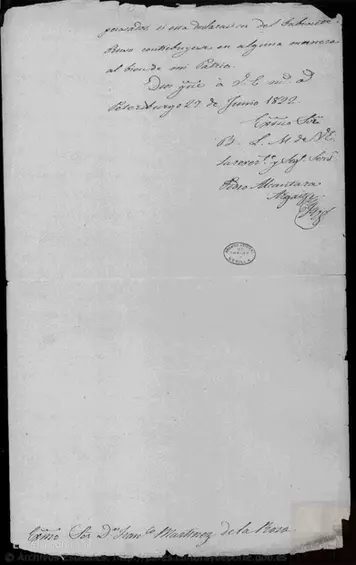 si esta declaracion del Gabinete
Ruso contribuyera en alguna manera
al bien de mi Patria.
Dios gue à V.E. ms. as.
Petersburgo 27 de Junio 1822.
Exmo Sor
B. L. M. de V.E.
su atento y Segº Servr
Pedro Alcantara
Argaiz
Exmo Sor Dn Franco Martinez de la Rosa.